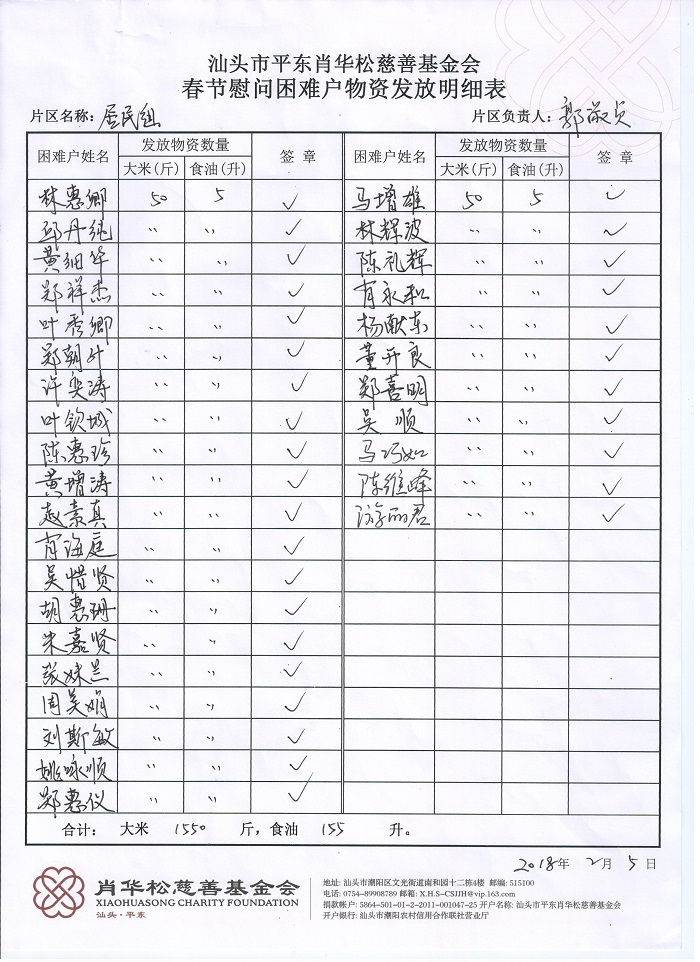 汕头市平东肖华松慈善基金会
春节慰问困难户物资发放明细表
片区名称：居民组 片区负责人：郭淑贞
困难户姓名 发放物资数量 签 章 困难户姓名 发放物资数量 签 章
大米(斤) 食油(升) 大米(斤) 食油(升)
林惠卿 50 5 ✓ 马增雄 50 5 ✓
邱丹纯 〃 〃 ✓ 林辉波 〃 〃 ✓
黄细华 〃 〃 ✓ 陈礼辉 〃 〃 ✓
郑祥杰 〃 〃 ✓ 肖永和 〃 〃 ✓
叶秀卿 〃 〃 ✓ 杨献东 〃 〃 ✓
郑朝升 〃 〃 ✓ 董开良 〃 〃 ✓
许奕涛 〃 〃 ✓ 郑喜明 〃 〃 ✓
叶钦城 〃 〃 ✓ 吴顺 〃 〃 ✓
陈惠珍 〃 〃 ✓ 马巧如 〃 〃 ✓
黄增涛 〃 〃 ✓ 陈维峰 〃 〃 ✓
赵素真 〃 〃 ✓ 游丽君 〃 〃 ✓
肖海庭 〃 〃 ✓
吴惜贤 〃 〃 ✓
胡惠珊 〃 〃 ✓
朱嘉贤 〃 〃 ✓
张妹兰 〃 〃 ✓
周美娟 〃 〃 ✓
刘斯敏 〃 〃 ✓
姚咏顺 〃 〃 ✓
郑惠仪 〃 〃 ✓
合计： 大米 1550 斤，食油 155 升。
2018年 2月 5日
肖华松慈善基金会
XIAOHUASONG CHARITY FOUNDATION
汕头·平东
地址: 汕头市潮阳区文光街道南和园十二栋4楼 邮编: 515100
电话: 0754-89908789 邮箱: X.H.S-CSJJH@vip.163.com
捐款帐户: 5864-501-01-2-2011-001047-25 开户名称: 汕头市平东肖华松慈善基金会
开户银行: 汕头市潮阳农村信用合作联社营业厅